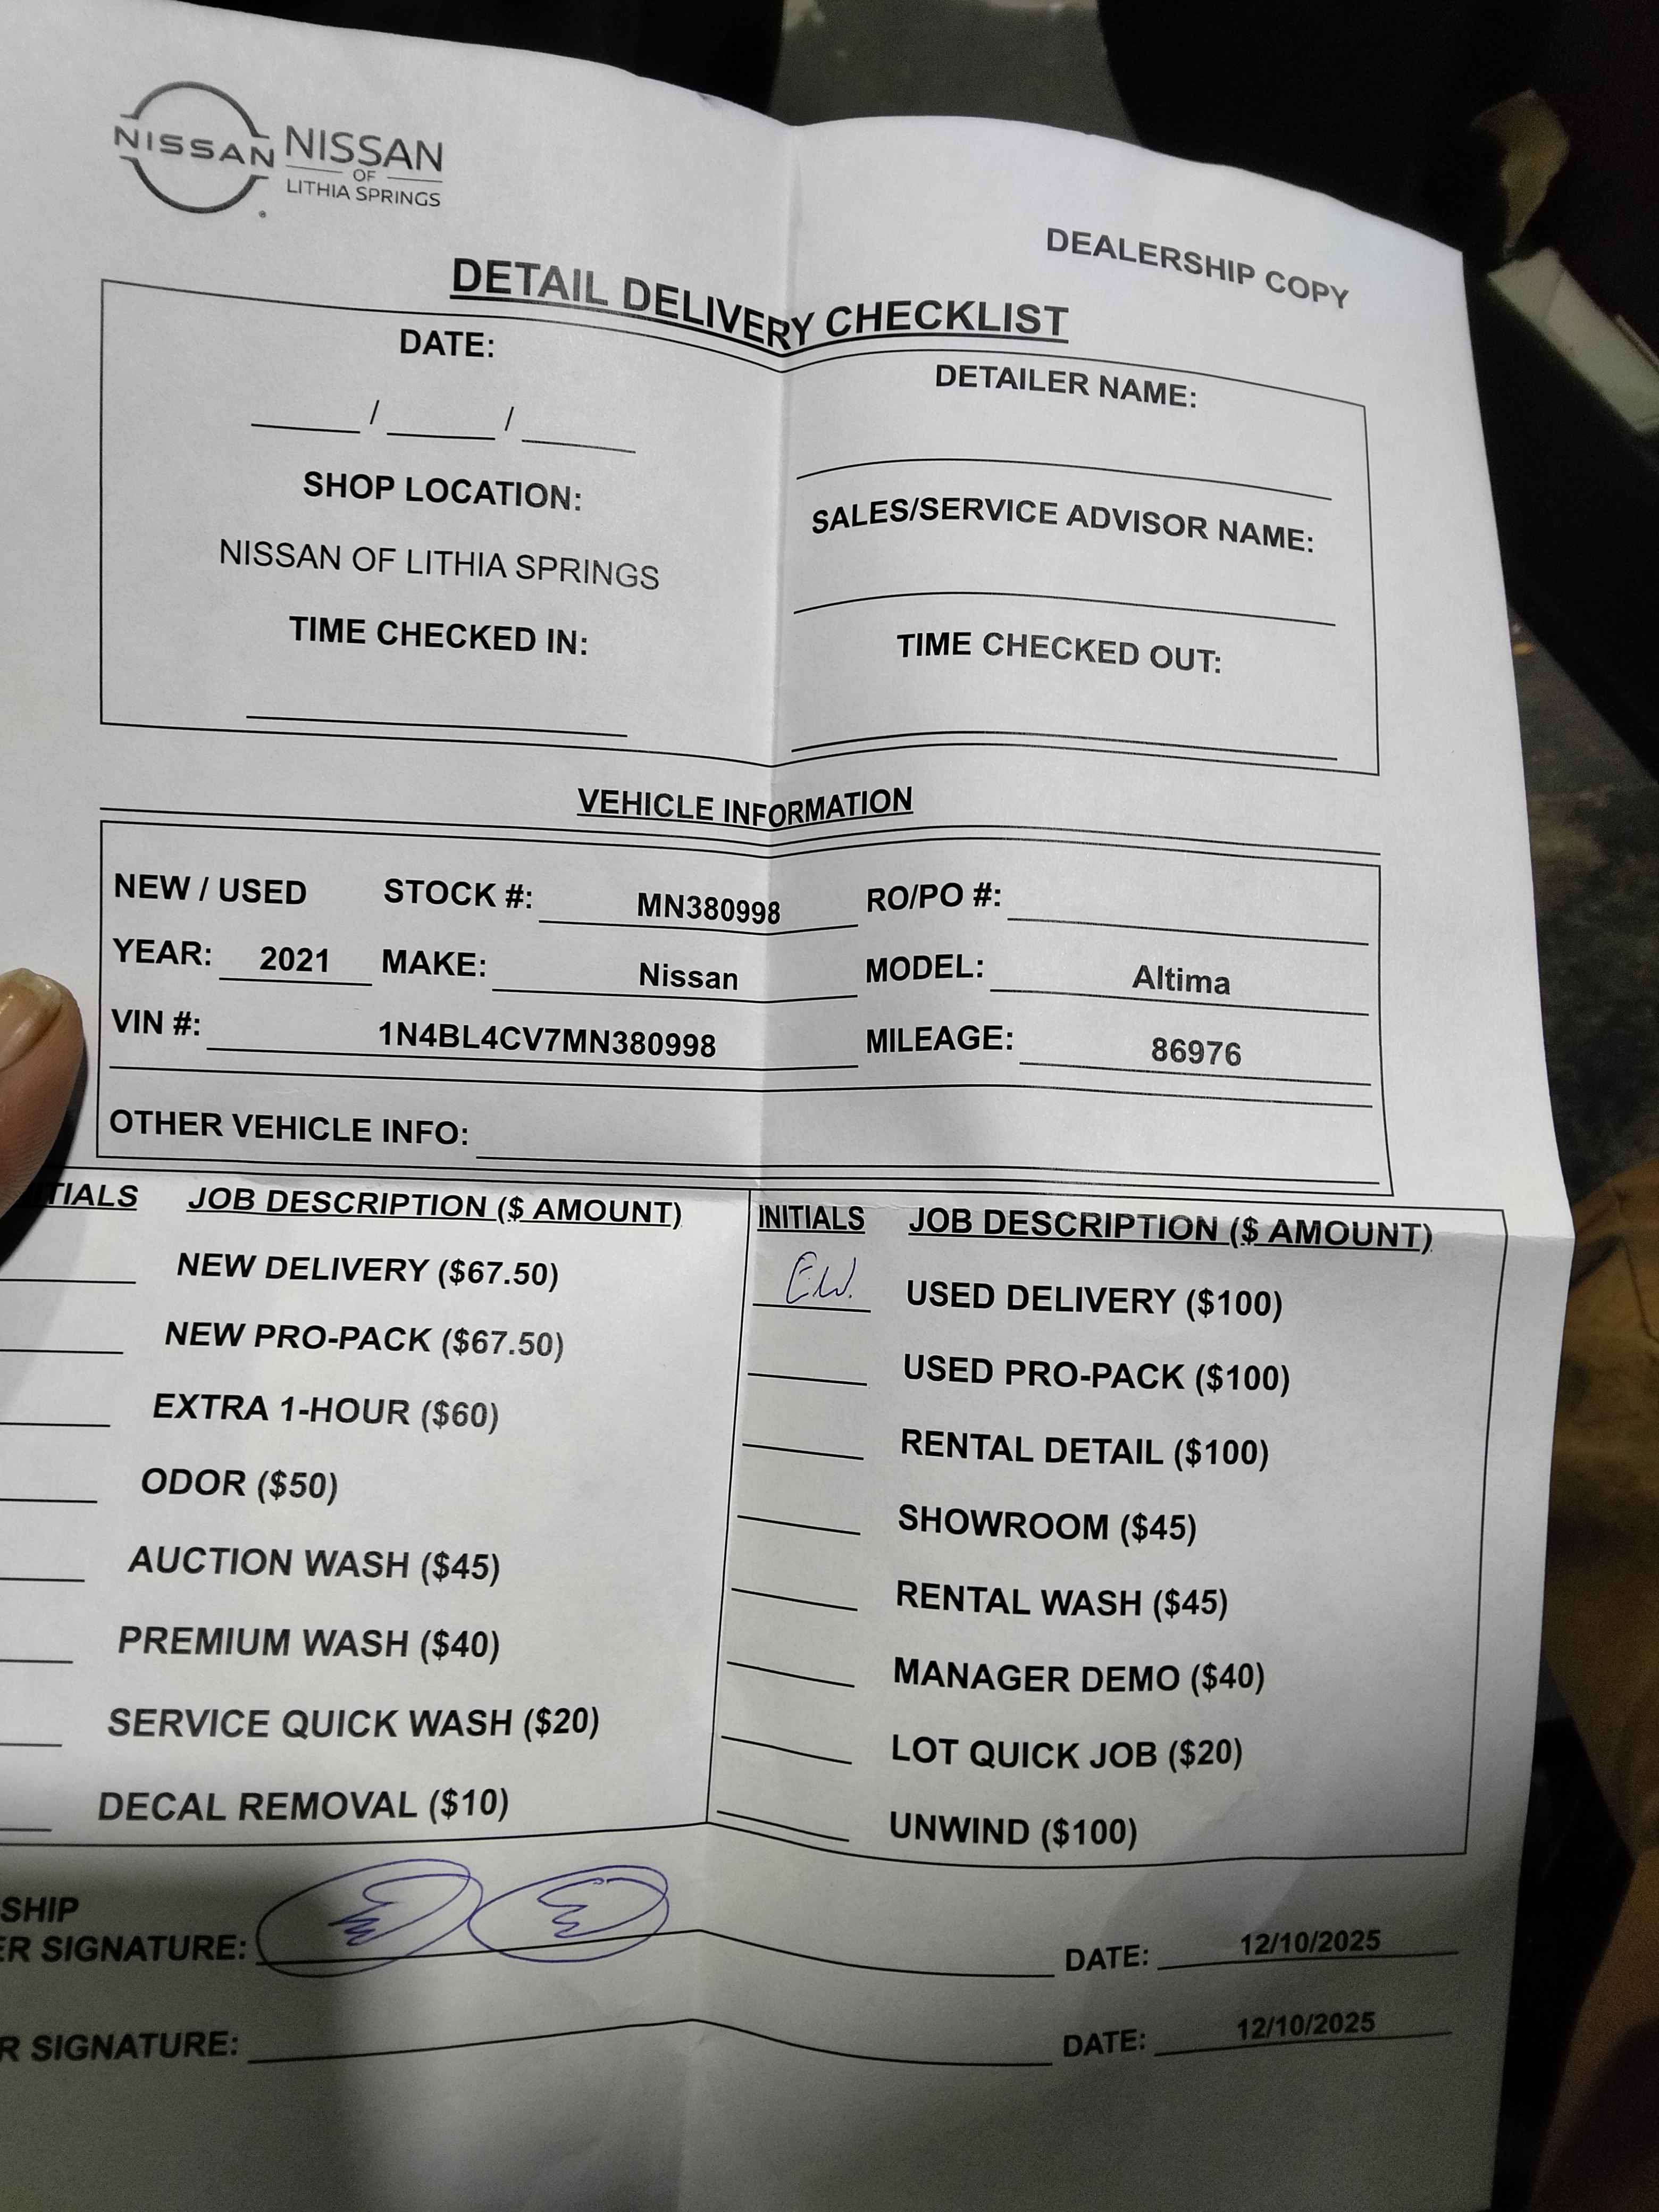 NISSAN
NISSAN
OF
LITHIA SPRINGS
DEALERSHIP COPY
DETAIL DELIVERY CHECKLIST
DATE:
/ /
SHOP LOCATION:
NISSAN OF LITHIA SPRINGS
TIME CHECKED IN:
DETAILER NAME:
SALES/SERVICE ADVISOR NAME:
TIME CHECKED OUT:
VEHICLE INFORMATION
NEW / USED STOCK #: MN380998 RO/PO #:
YEAR: 2021 MAKE: Nissan MODEL: Altima
VIN #: 1N4BL4CV7MN380998 MILEAGE: 86976
OTHER VEHICLE INFO:
TIALS JOB DESCRIPTION ($ AMOUNT)
NEW DELIVERY ($67.50)
NEW PRO-PACK ($67.50)
EXTRA 1-HOUR ($60)
ODOR ($50)
AUCTION WASH ($45)
PREMIUM WASH ($40)
SERVICE QUICK WASH ($20)
DECAL REMOVAL ($10)
INITIALS JOB DESCRIPTION ($ AMOUNT)
E.W. USED DELIVERY ($100)
USED PRO-PACK ($100)
RENTAL DETAIL ($100)
SHOWROOM ($45)
RENTAL WASH ($45)
MANAGER DEMO ($40)
LOT QUICK JOB ($20)
UNWIND ($100)
SHIP
ER SIGNATURE: DATE: 12/10/2025
R SIGNATURE: DATE: 12/10/2025